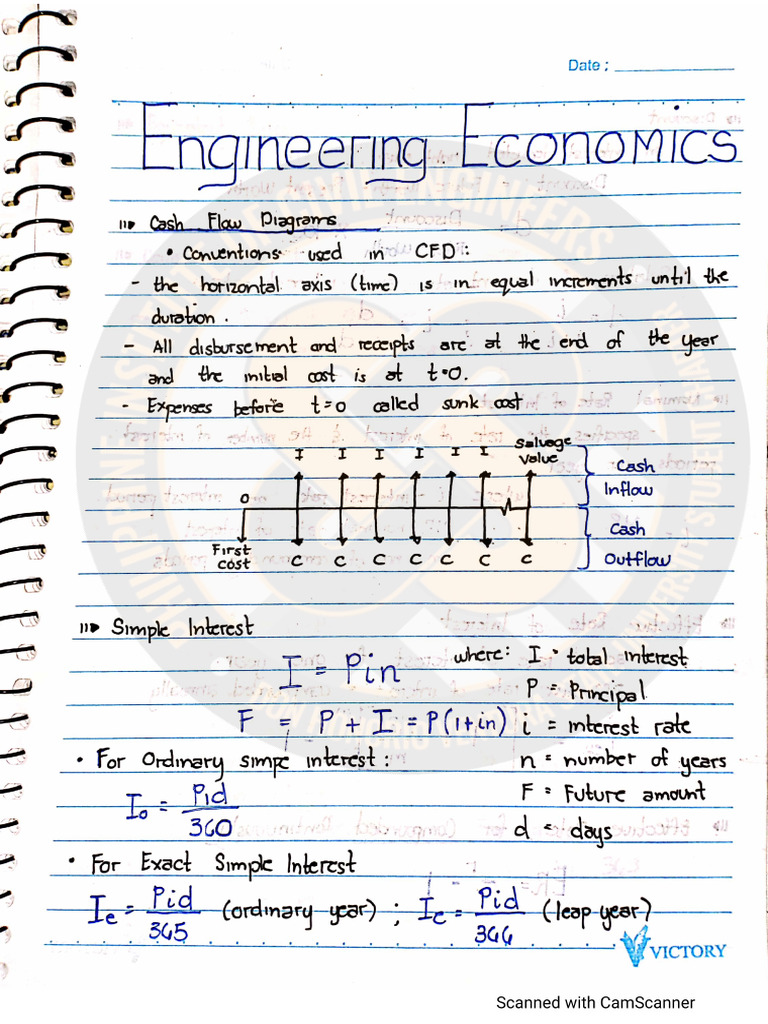 Date : ____________
Engineering Economics
Cash Flow Diagrams
• Conventions used in CFD:
- the horizontal axis (time) is in equal increments until the
duration.
- All disbursement and receipts are at the end of the year
and the initial cost is at t=0.
- Expenses before t=0 called sunk cost
I I I I I I Salvage Value
Cash
Inflow
0
Cash
Outflow
First
cost
C C C C C C C
Simple Interest
I = Pin
where: I = total interest
P = Principal
F = P + I = P(1+in)
i = interest rate
• For Ordinary simpe interest:
n = number of years
Io = Pid/360
F = Future amount
d = days
• For Exact Simple Interest
Ie = Pid/365 (ordinary year) ; Ie = Pid/366 (leap year)
VICTORY
Scanned with CamScanner